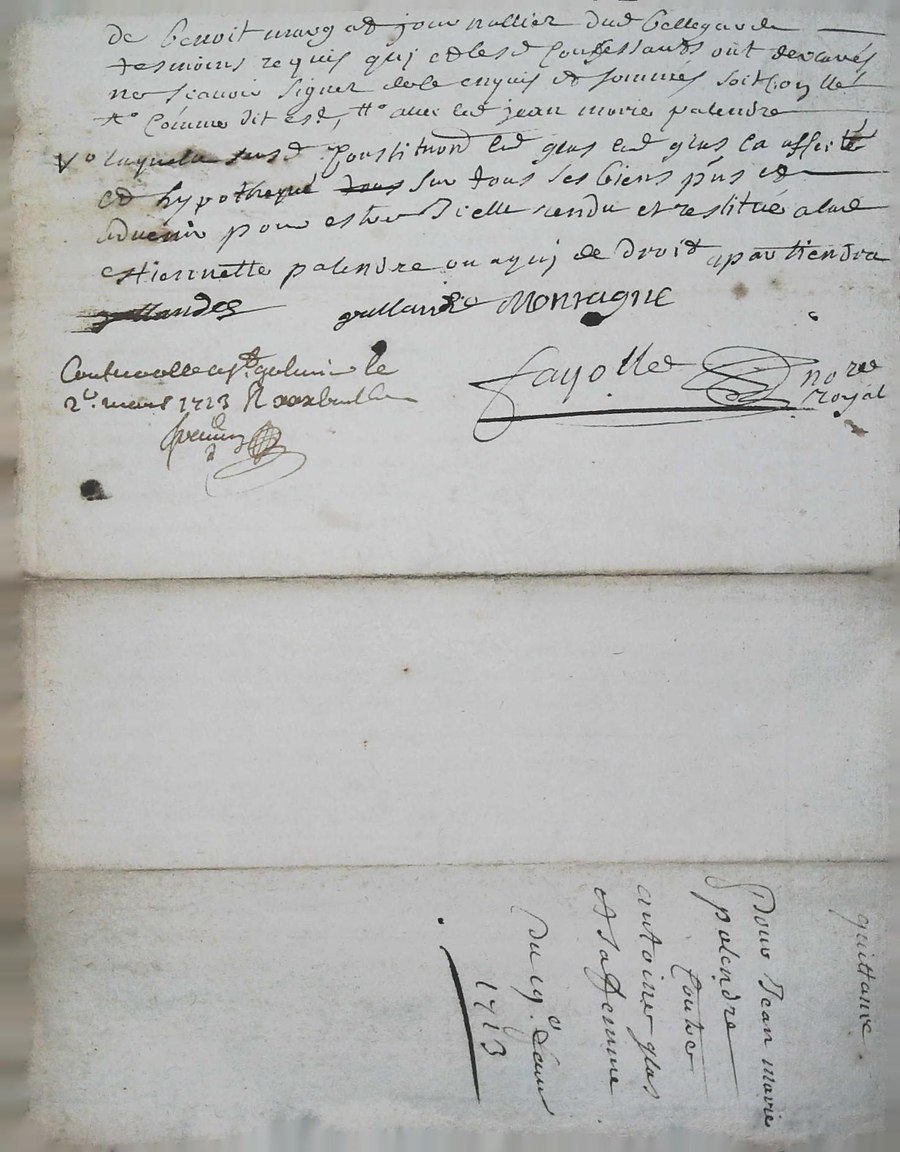 de Benoit marg et journallier dud bellegarde
tesmoins requis qui et lesd confessants ont declarés
ne scavoir signer de ce enquis et sommés soit
Comme dit est, avec led jean marie palendre
Vo laquelle susd Constitu͠on led glas led glas a affecté
et hypothequé tous sur tous ses biens p̃ns et
advenir pour estre Icelle rendu et restitué a lad
estiennette palendre ou a qui de droit apartiendra
gallandes gallande Montagne
Controolle a st galmier le
2e mars 1713 R
fayolle nore
royal
quittance
Pour Jean marie
palendre
Contre
antoine glas
et sa femme
Du 19e
1713